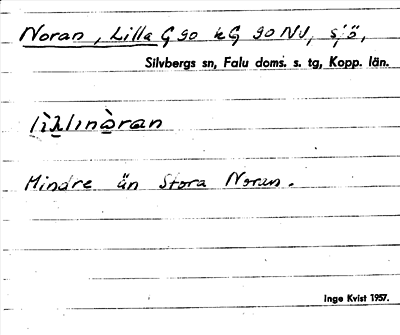 Noran, Lilla G 90 kG 90 NV, sjö,
Silvbergs sn, Falu doms. s. tg, Kopp. län.
Mindre än Stora Noran.
Inge Kvist 1957.